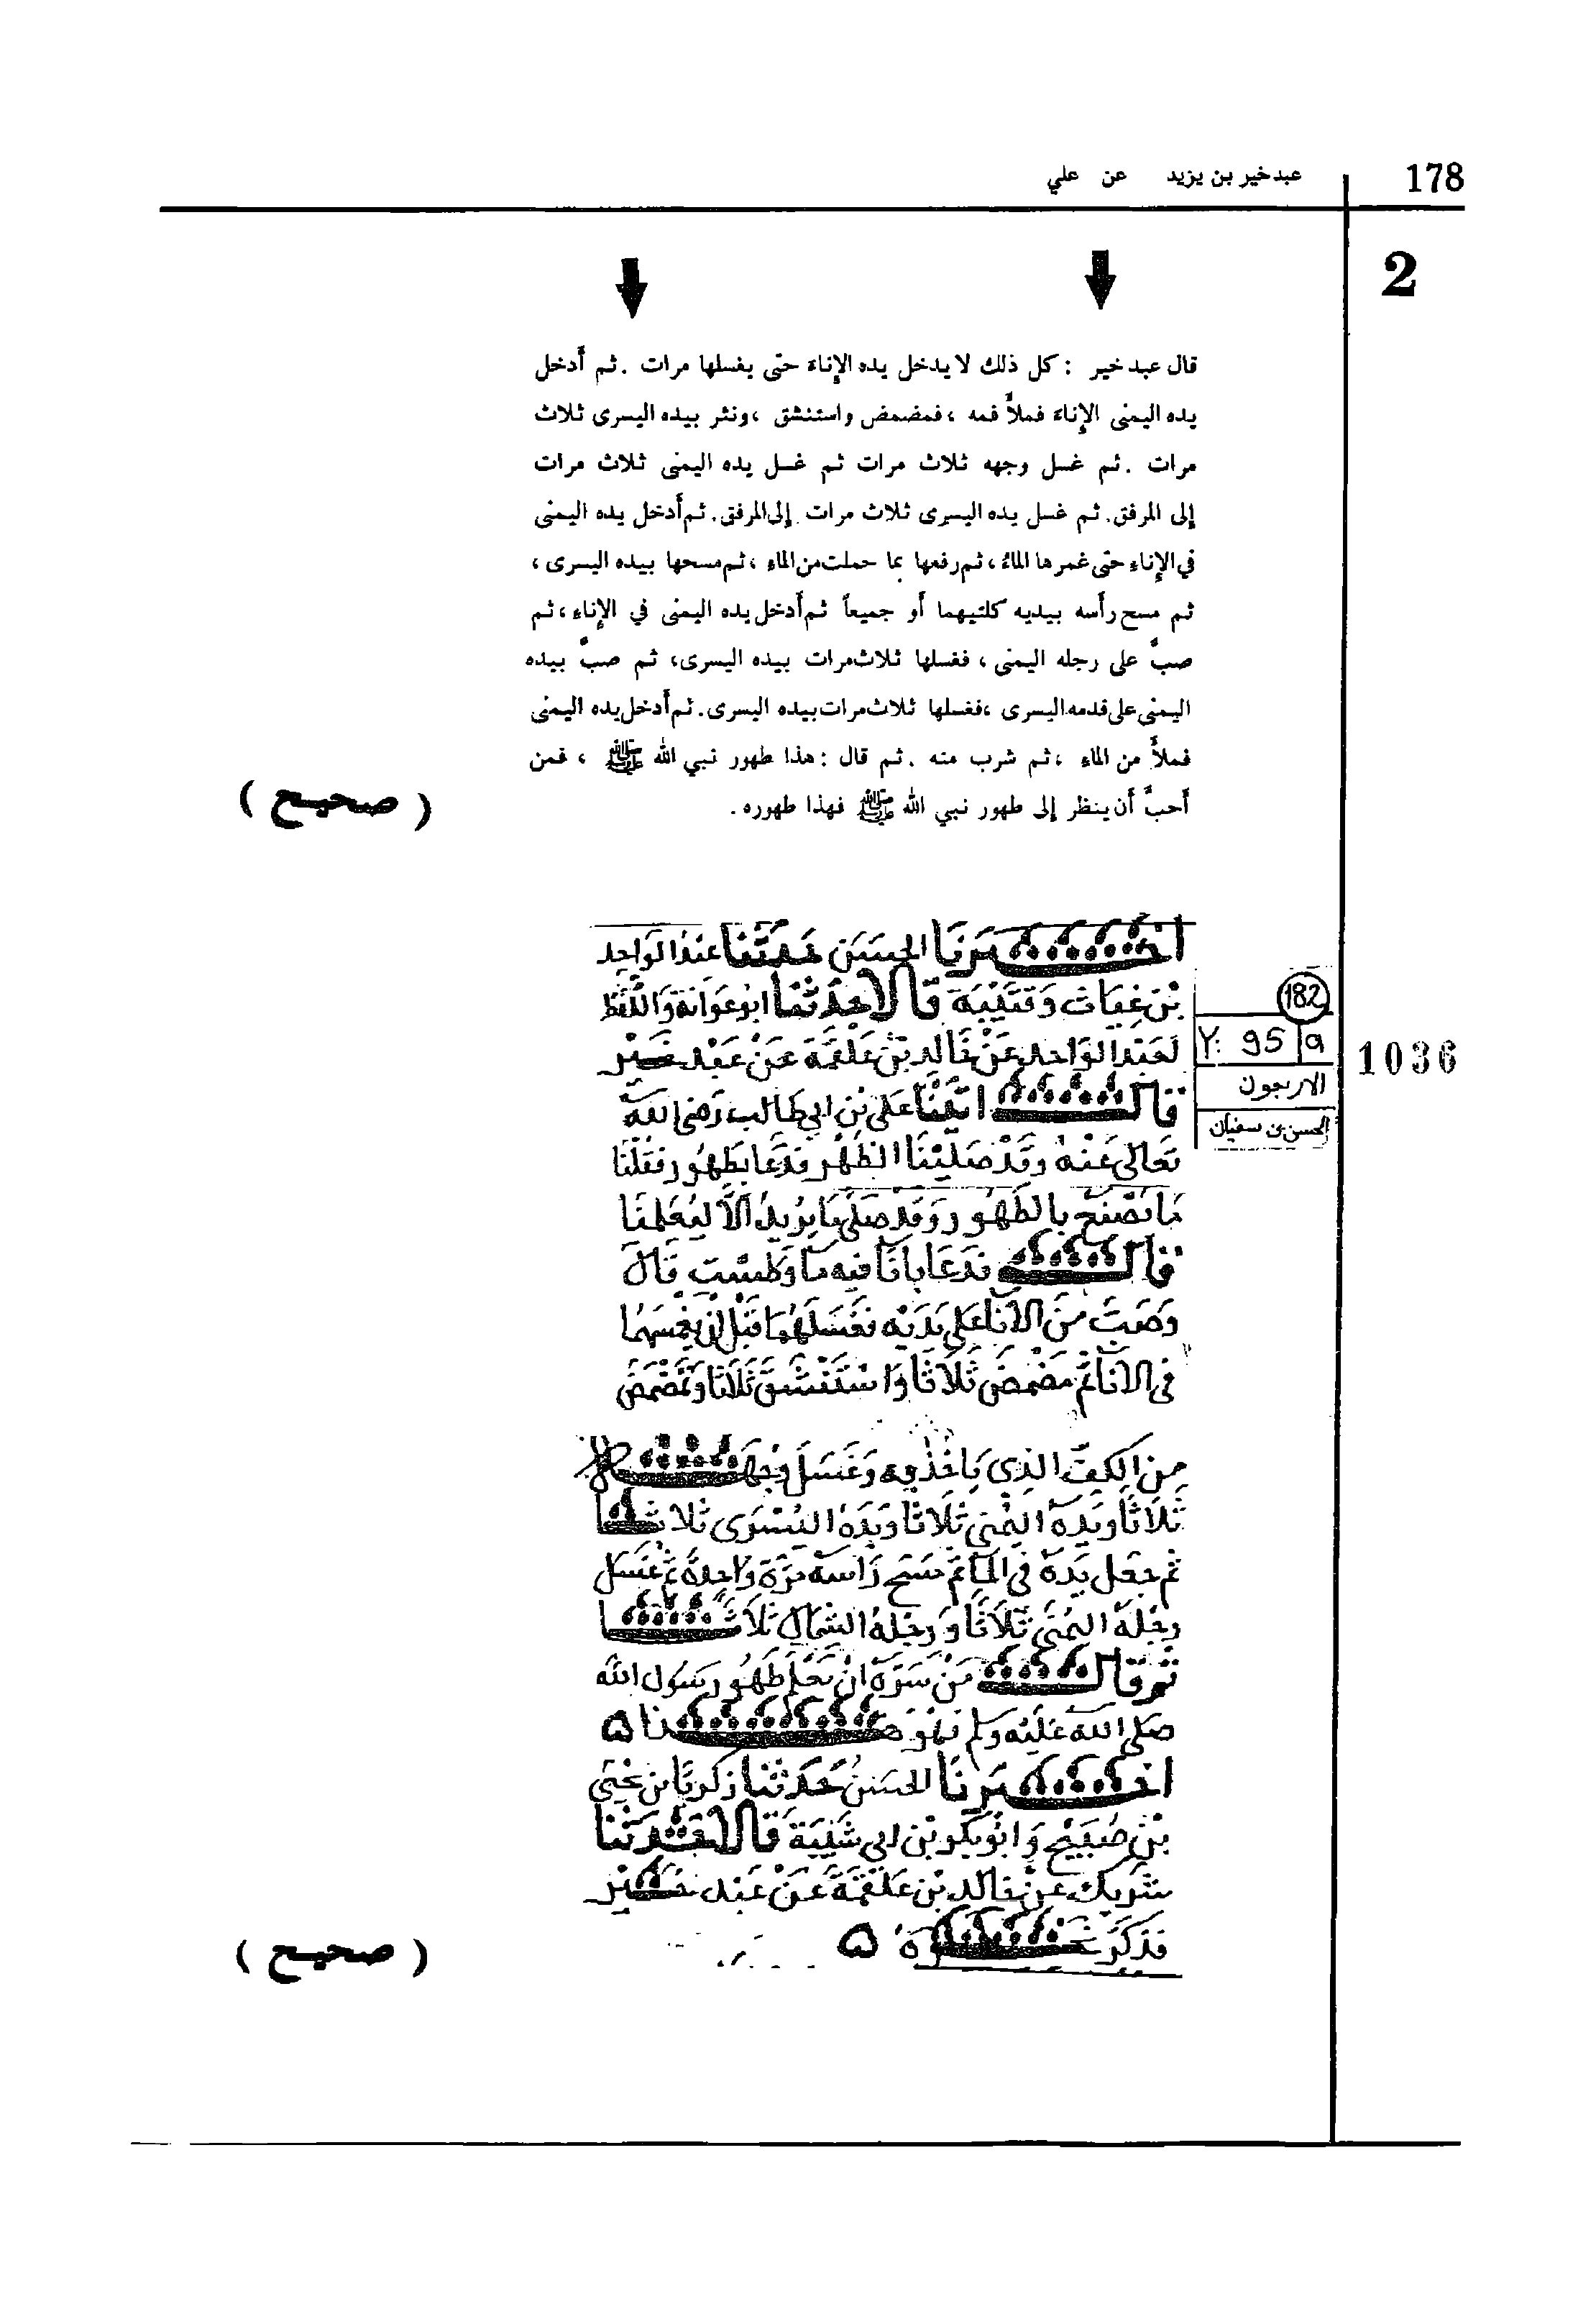 178
عبدخير بن يزيد عن علي
2
قال عبد خير : كل ذلك لا يدخل يده الإناء حتى يغسلها مرات . ثم أدخل
يده اليمنى الإناء فملأ فمه ، فمضمض واستنشق ، ونثر بيده اليسرى ثلاث
مرات . ثم غسل وجهه ثلاث مرات ثم غسل يده اليمنى ثلاث مرات
إلى المرفق. ثم غسل يده اليسرى ثلاث مرات إلى المرفق. ثم أدخل يده اليمنى
في الإناء حتى غمرها الماءُ ، ثم رفعها بما حملت من الماء ، ثم مسحها بيده اليسرى ،
ثم مسح رأسه بيديه كلتيهما أو جميعاً ثم أدخل يده اليمنى في الإناء ، ثم
صبَّ على رجله اليمنى ، فغسلها ثلاث مرات بيده اليسرى، ثم صبَّ بيده
اليمنى على قدمه اليسرى ، فغسلها ثلاث مرات بيده اليسرى . ثم أدخل يده اليمنى
فملأ من الماء ، ثم شرب منه . ثم قال : هذا طهور نبي الله ﷺ ، فمن
أحبَّ أن ينظر إلى طهور نبي الله ﷺ فهذا طهوره .
( صحيح )
182
9 95 :Y
الاربعون
الحسن بن سفيان
1036
اخبرنا الحسن حدثنا عبد الواحد
بن غياث وقتيبة قالا حدثنا ابو عوانة واللفظ
لعبد الواحد عن خالد بن علقمة عن عبد خير
قال اتينا علي بن ابي طالب رضي الله
تعالى عنه وقد صلينا الظهر فدعا بطهور فقلنا
ما يصنع بالطهور وقد صلى ما يريد الا ليعلمنا
قال فدعا باناء فيه ما وطست قال
وصب من الاناء على يديه فغسلهما قبل ان يغمسهما
في الاناء ثم مضمض ثلاثا واستنشق ثلاثا وتمضمض
من الكف الذي ياخذ فيه وغسل وجهه
ثلاثا ويده اليمنى ثلاثا ويده اليسرى ثلاثا
ثم جعل يده في الماء ثم مسح راسه مرة واحدة ثم غسل
رجله اليمنى ثلاثا ورجله الشمال ثلاثا
ثم قال من سره ان يعلم طهور رسول الله
صلى الله عليه وسلم فهو هذا ه
اخبرنا الحسن حدثنا زكريا بن يحيى
بن صبيح وابو بكر بن ابي شيبة قالا حدثنا
شريك عن خالد بن علقمة عن عبد خير
فذكر نحوه ه
( صحيح )